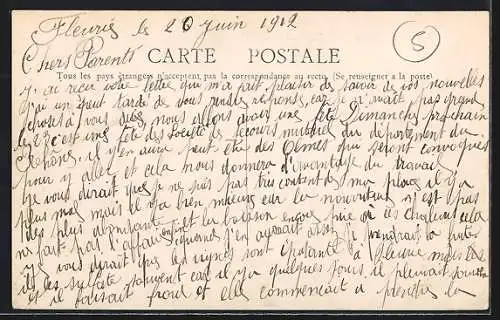 Fleurie le 20 juin 1912
5
Chers Parents
CARTE POSTALE
Tous les pays étrangers n'acceptent pas la correspondance au recto. (Se renseigner à la poste)
J'ai reçu votre lettre qui m'a fait plaisir de savoir de vos nouvelles
j'ai un peut tardé de vous rendre réponse, car je n'avait pas grand
chose à vous dire nous allons avoir une fête Dimanche prochain
le 23 c'est une fête des sociétés de secours mutuel du département du
Rhône, il y en aura peut être des qui seront convoqués
pour y aller et cela nous donnera d'avantage du travail
Je vous dirait que je ne suis pas très content de ma place il y a
plus mal mais il y a bien mieux car la nourriture n'y est pas
des plus abondante et la boisson encore pire et ces chaleurs cela
ne fait pas l'affaire enfin
Je vous dirait que les vignes sont à Fleurie mais
il les sulfate souvent car il y a quelques jours il pleuvait
il faisait froid et elle commencait a prendre la